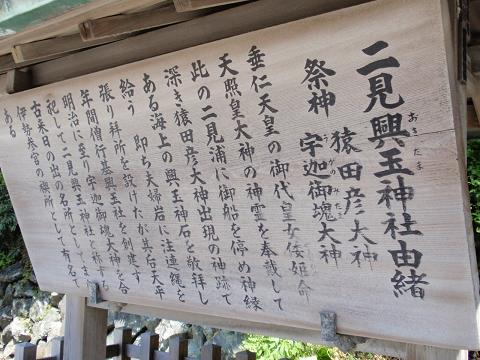 二見興玉神社由緒
おきたま
祭神 猿田彦大神
宇迦御魂大神
うがのみたま
垂仁天皇の御代皇女倭姫命
天照皇大神の神霊を奉戴して
此の二見浦に御船を停め神縁
深き猿田彦大神出現の神跡で
ある海上の興玉神石を敬拝し
給う 即ち夫婦岩に注連縄を
張り拝所を設けたが其后天平
年間僧行基興玉社を創建す
明治に至り宇迦御魂大神を合
祀して二見興玉神社と称する
古来日の出の名所としてまた
伊勢参宮の禊所として有名で
ある